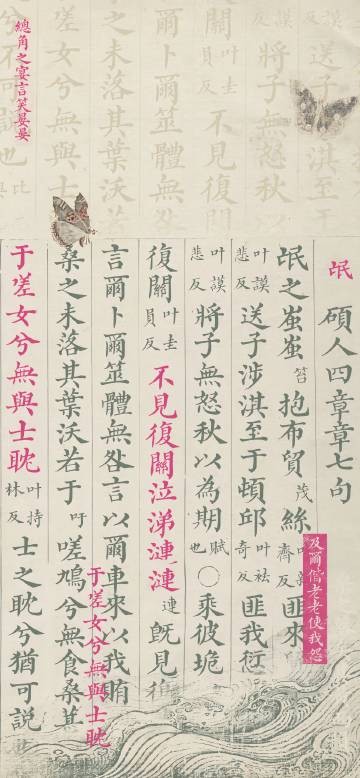 送子涉淇至于
叶謨悲反將子無怒秋
叶圭員反不見復
爾卜爾筮體無咎
之未落其葉沃
嗟女兮無與士
總角之宴言笑晏晏
氓
碩人四章章七句
氓之蚩蚩笞抱布貿茂絲齎反匪來
叶謨悲反送子涉淇至于頓邱叶袪奇反匪我愆
叶謨悲反將子無怒秋以為期賦也○乘彼垝
復關叶圭員反不見復關泣涕漣漣連既見復
言爾卜爾筮體無咎言以爾車來以我賄
桑之未落其葉沃若于吁嗟鳩兮無食桑葚
于嗟女兮無與士耽叶持林反士之耽兮猶可說也
及爾偕老老使我怨
于嗟女兮無與士耽